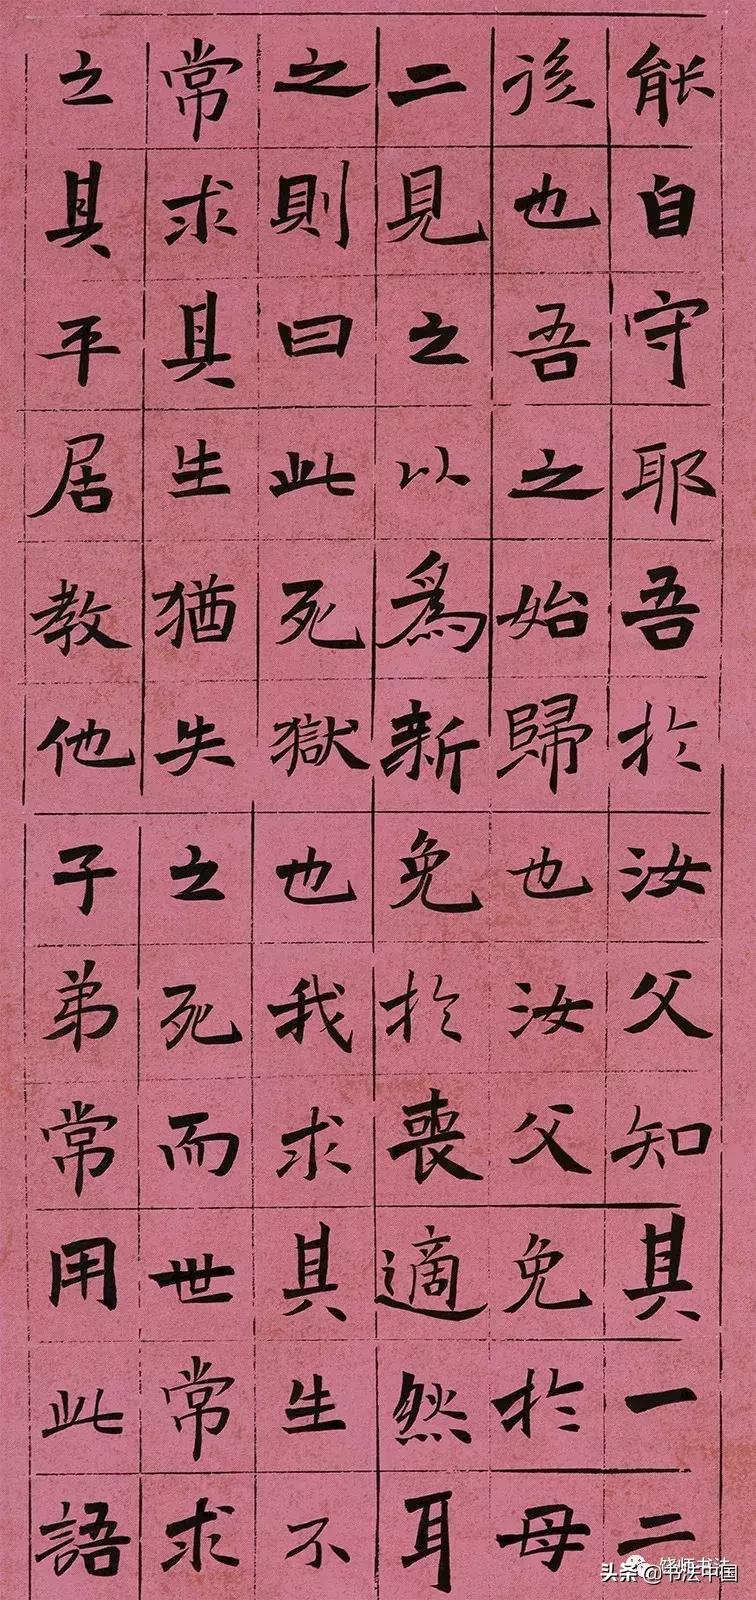 能自守耶吾於汝父知其一二
後也吾之始歸也汝父免於母
二見之以爲新免於喪適然耳
之則曰此死獄也我求其生不
常求其生猶失之死而世常求
之其平居教他子弟常用此語
饶师书法
头条@书法中国